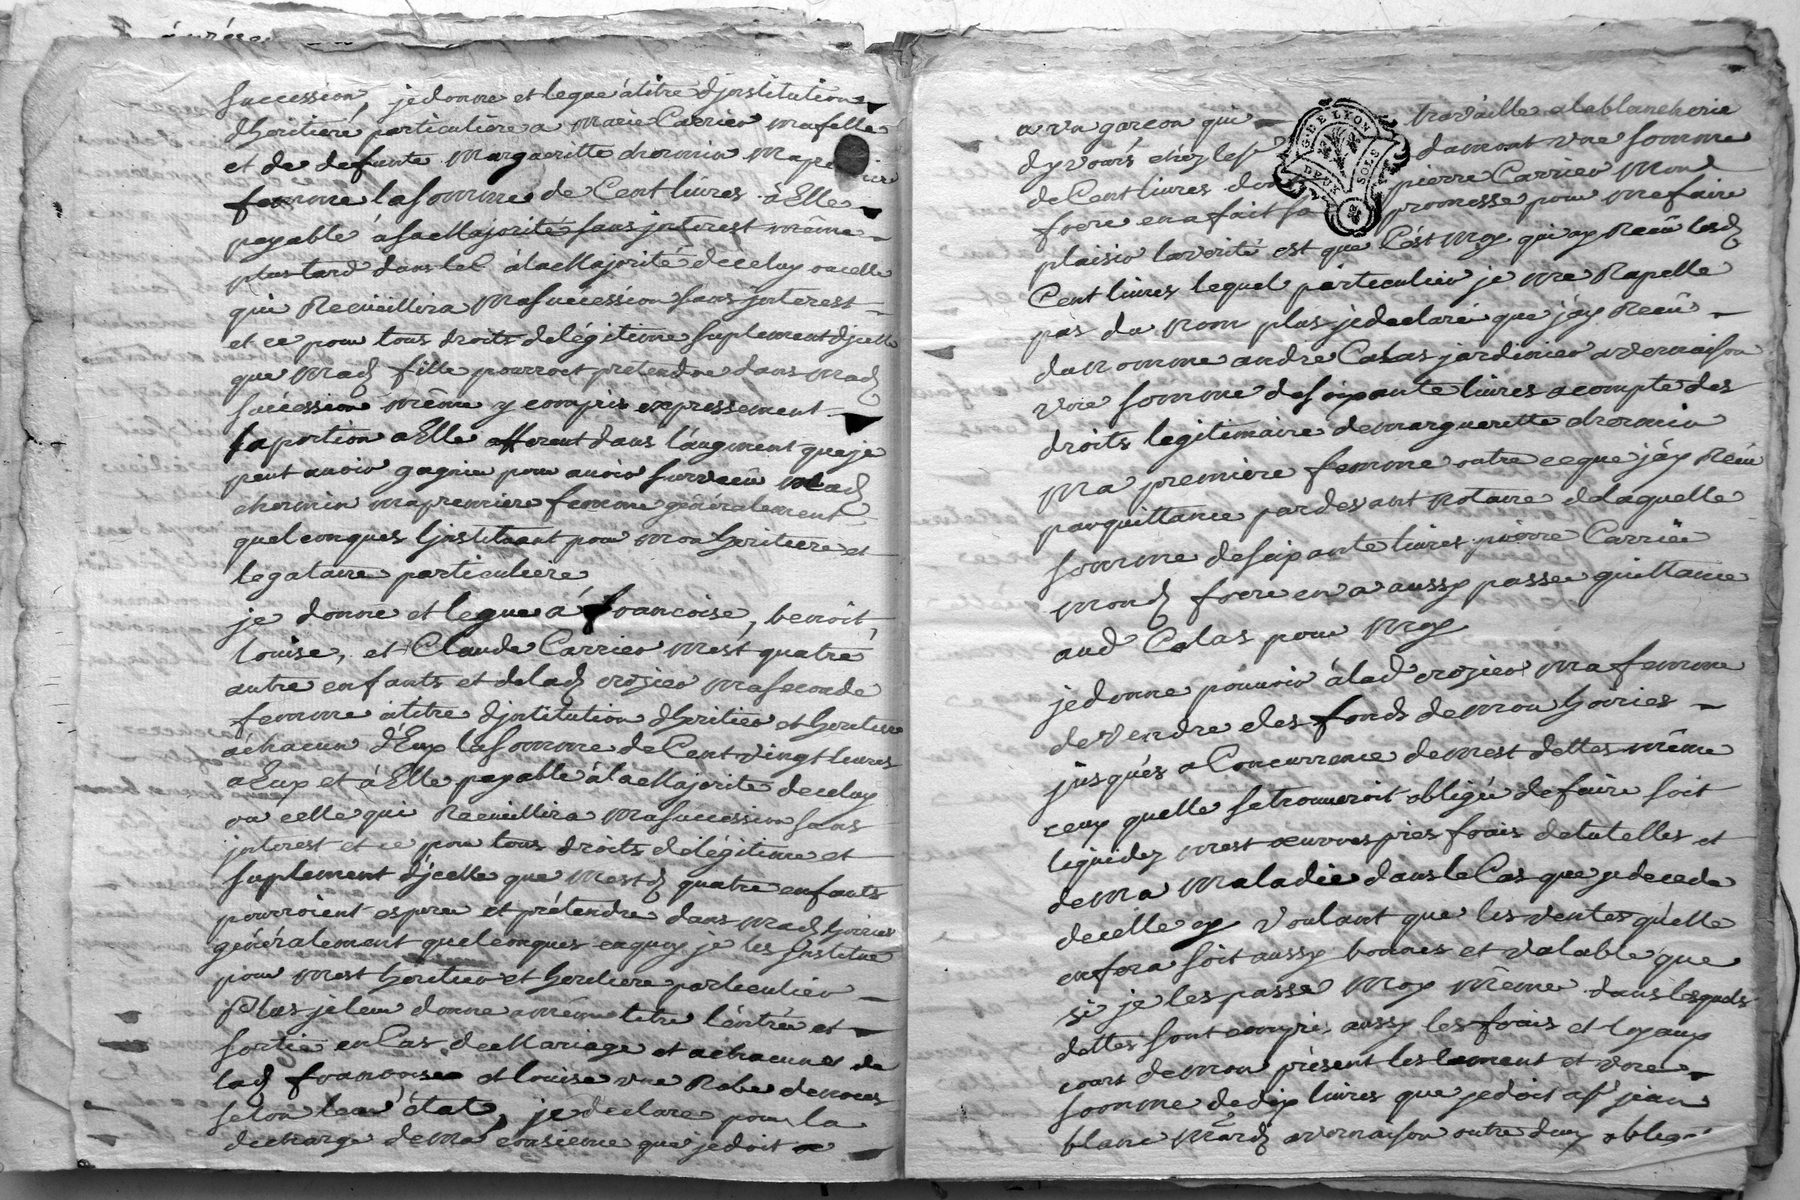 succession, je donne et legue à titre d'jnstitution
d'heritiere particuliere a Marie Carrier ma fille
et de defunte Margueritte chermin ma premiere
femme la somme de Cent livres à Elle
payable à sa Majorité sans jnterest même
plus tard dans le C à la Majorité de celuy ou celle
qui Recueillira ma succession sans jnterest
et ce pour tous droits de légitime suplement d'jcelle
que mad fille pourroit pretendre dans mad
succession même y compris expressement
la portion a Elle afferent dans l'augment que je
peut avoir gagnée pour avoir survecu mad
chermin ma premiere femme généralement
quelconques L'jnstituant pour mon heritiere et
legataire particuliere
je donne et legue à francoise, benoit,
louise, et Claude Carrier mest quatre
autre enfants et de lad crozier ma seconde
femme à titre d'jnstitution d'heritier et heritiere
a chacun d'Eux la somme de Cent vingt livres
a Eux et à Elle payable à la Majorité de celuy
ou celle qui Recueillira ma succession sans
jnterest et ce pour tous droits de légitime et
suplement d'jcelle que mestd quatre enfants
pourroient esperer et prétendre dans mad hoiries
généralement quelconques en quoy je les jnstitue
pour mest heritier et heritiere particulier
Plus je leur donne a même titre l'entrée et
sortie en Cas de Mariage et a chacunes de
lad francoise et louise une Robe de noces
selon leur état, je declare pour la
decharge de ma consience que je doit a
a un garcon qui travaille a la blancherie
d'yvours chez le sr damont une somme
de Cent livres dont pierre Carrier mon
frere en a fait sa promesse pour me faire
plaisir la verité est que C'est moy qui ay Recu lesd
Cent livres lequel particulier je me Rapelle
pas du nom plus je declare que j'ay Recu
du nomme andre Calas jardinier a vernaison
une somme de soixante livres a compte des
droits legitimaire de marguerette chermin
ma premiere femme outre ce que j'ay Recu
par quittance par devant notaire de laquelle
somme de soixante livres pierre Carrier
mond frere en a aussy passee quittance
aud Calas pour moy
je donne pouvoir à lad crozier ma femme
de vendre des fonds de mon hoiries
jusqués a Concurrence de mest dettes même
ceux quelle se trouveroit obligée de faire soit
liquidez mest œuvres pies frais de tutelles et
de ma maladie dans le Cas que je decede
de celle cy voulant que les ventes qu'elle
en fera soit aussy bonnes et valable que
si je les passe moy même dans lesquels
dettes sont compris aussy les frais et loyaux
couts de mon présent testament et une
somme de dix livres que je dois a sr jean
blanc mard a vernaison outre deux obliga
G. DE LYON
DEUX SOLS